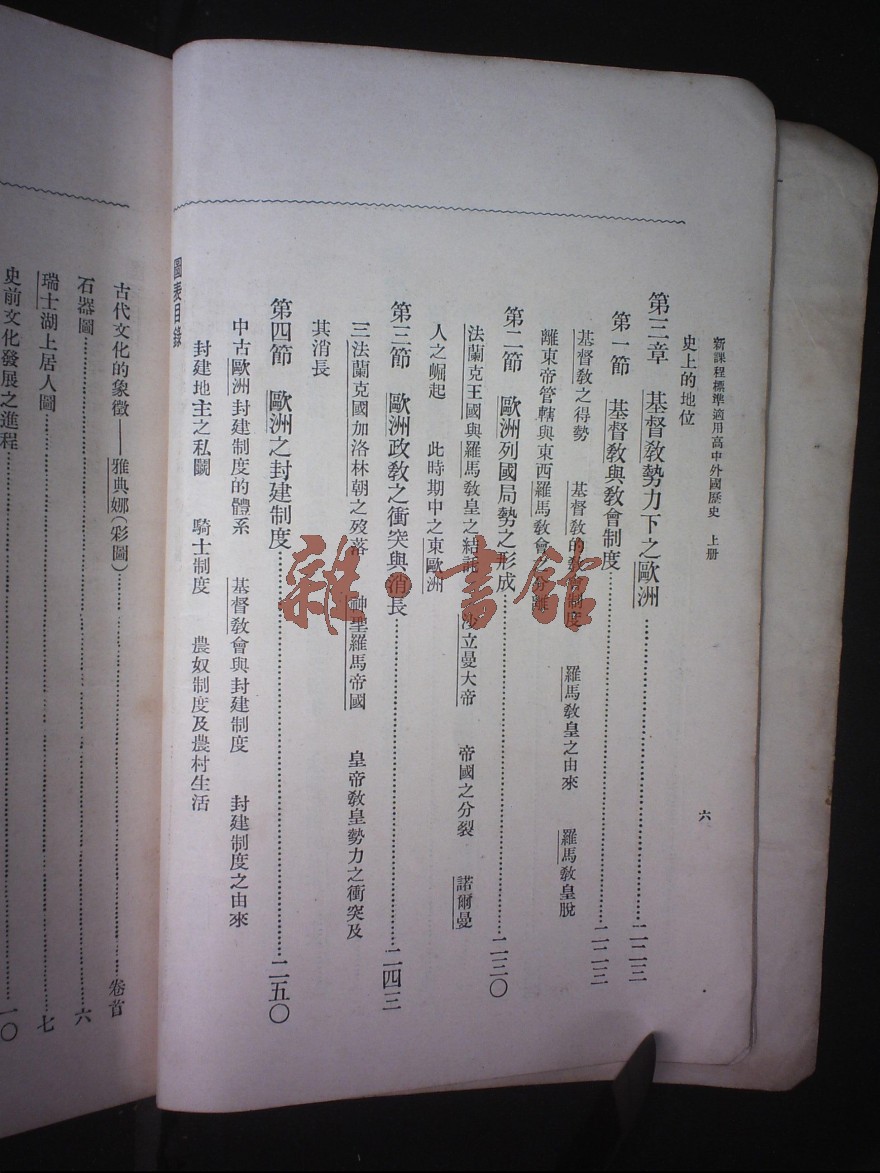 新課程標準適用高中外國歷史　上册
六
史上的地位
第三章　基督敎勢力下之歐洲……二二三
第一節　基督敎與敎會制度……二二三
基督敎之得勢　基督敎的敎會制度　羅馬敎皇之由來　羅馬敎皇脫
離東帝管轄與東西羅馬敎會之分離
第二節　歐洲列國局勢之形成……二三〇
法蘭克王國與羅馬敎皇之結託　沙立曼大帝　帝國之分裂　諾爾曼
人之崛起　此時期中之東歐洲
第三節　歐洲政敎之衝突與消長……二四三
三法蘭克國加洛林朝之歿落　神聖羅馬帝國　皇帝敎皇勢力之衝突及
其消長
第四節　歐洲之封建制度……二五〇
中古歐洲封建制度的體系　基督敎會與封建制度　封建制度之由來
封建地主之私鬭　騎士制度　農奴制度及農村生活
圖表目錄
古代文化的象徵——雅典娜(彩圖)……卷首
石器圖……六
瑞士湖上居人圖……七
史前文化發展之進程……一〇
雜·書館